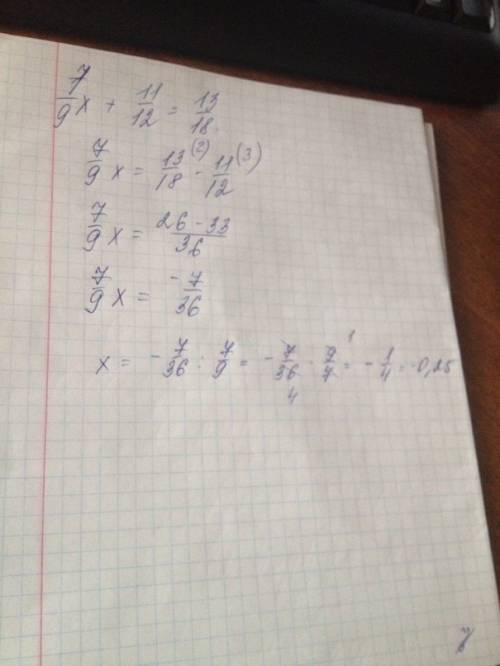 7/9 x + 11/12 = 13/18
7/9 x = 13/18 (2) - 11/12 (3)
7/9 x = 26 - 33/36
7/9 x = - 7/36
x = - 7/36 : 7/9 = - 7/36 4 · 9/7 1 = - 1/4 = -0,25